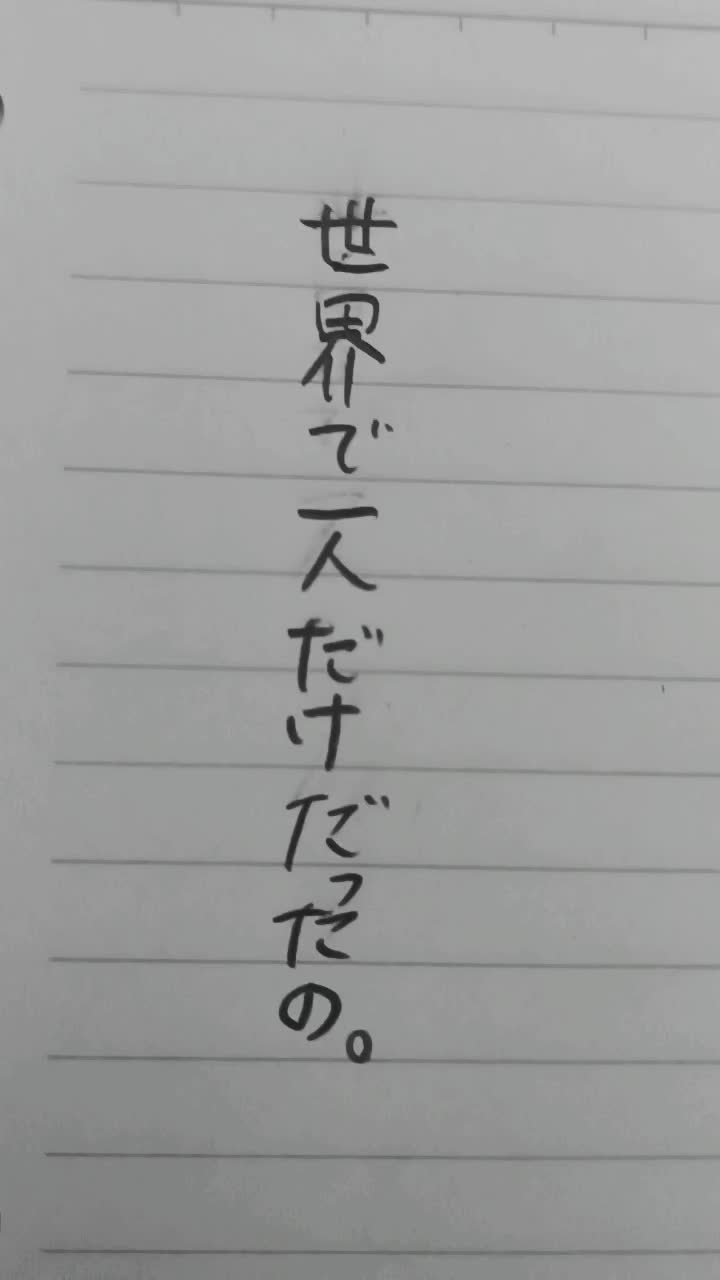 世界で一人だけだったの。